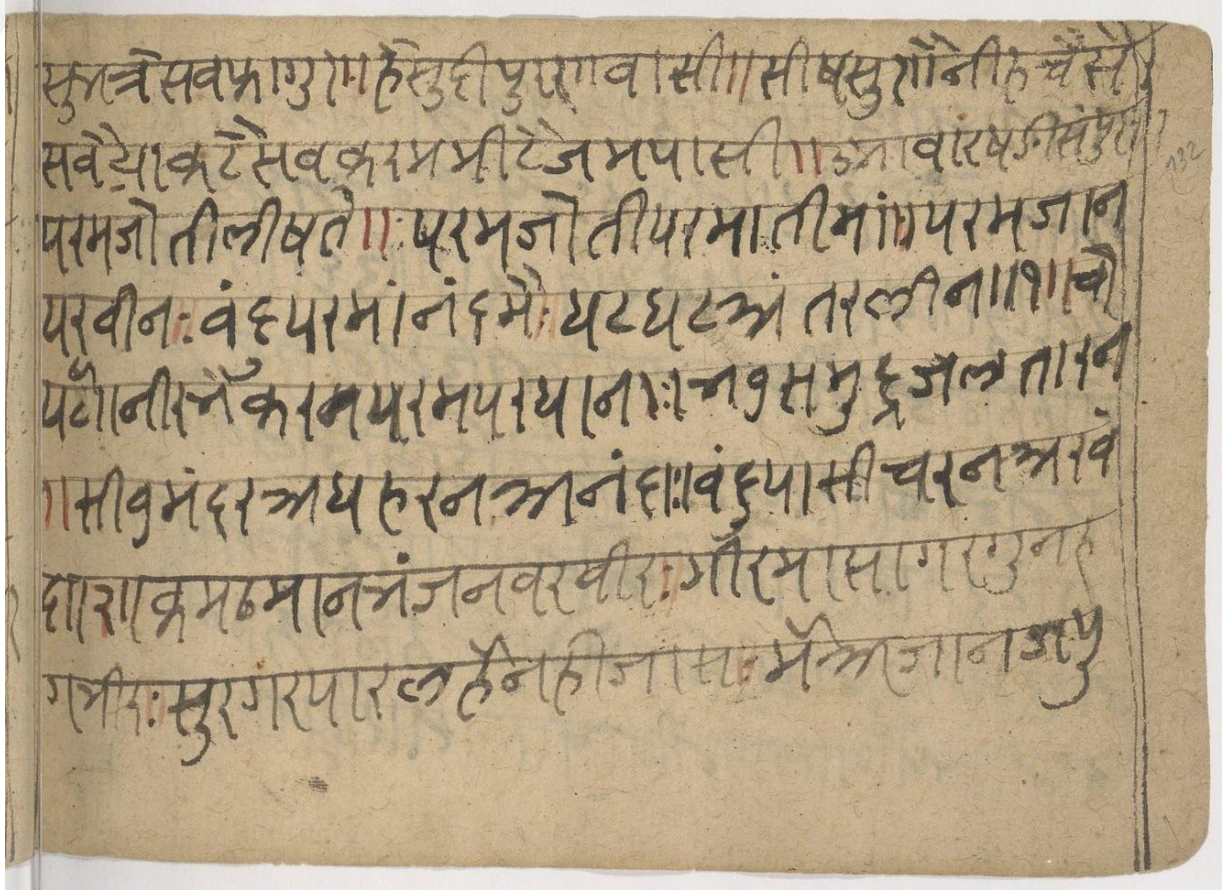 सुभत्रे सव फागुण ॥ है सुदी पुरण वासी ॥ सीष सुणौ नीहचै सै
सवैया कटै सव करम मीटै जम पासी ॥ वारंषडी संपुरण
परमजोती लीषते ॥ परमजोती परमातीमां ॥ परमजान
परवीन ॥ वंदु परमांनंदमै ॥ घटघट अंतर लीन ॥१॥ चौ
पणै नीरभै करम परम परधान ॥ भवु समुद्र जल तारन
॥ सीवु मंदर अघ हरन अनंदा ॥ वंदु पासी चरन अरवं
दा ॥२॥ कमठ मान भंजन वरवीर ॥ गौरमा सागर गुनह
गभीर ॥ सुरगर पार लहै नही जास ॥ मै अजान जपु
132